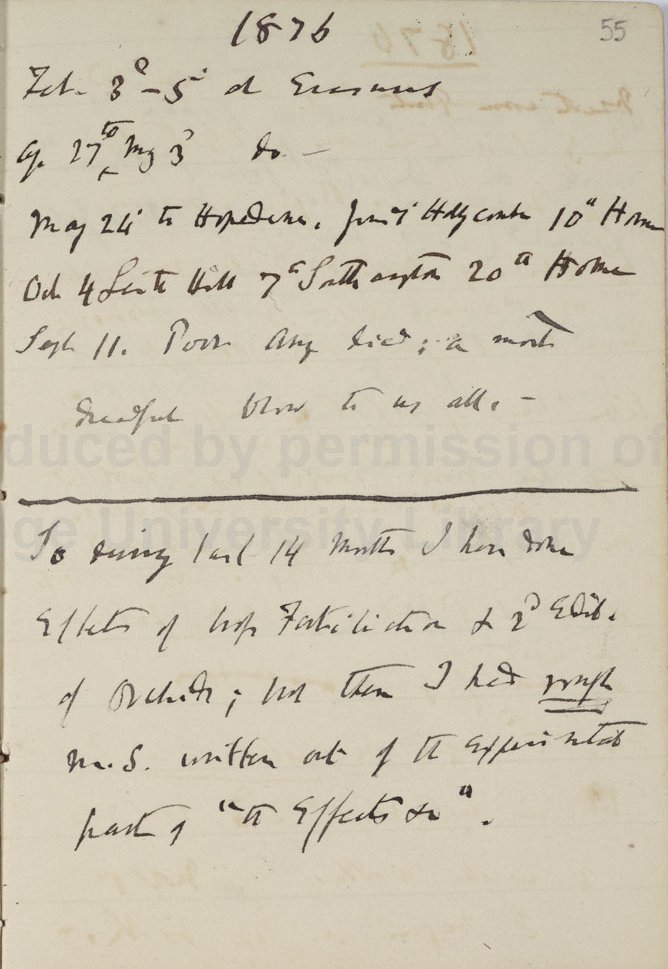 1876
55
Feb. 3d – 5th at Erasmus
Ap. 27th to May 3d do –
May 24th to Hopedene. June 7th Hollycombe 10th Home
Oct 4 Leith Hill 7th Southampton 20th Home
Sept 11. Poor Amy died; a most
dreadful blow to us all. –
duced by permission of
ge University Library
So during last 14 months I have done
Effects of Cross Fertilisation & 2d Edit.
of Orchids; but then I had rough
M.S. written out of the experimental
part of "the Effects &c".